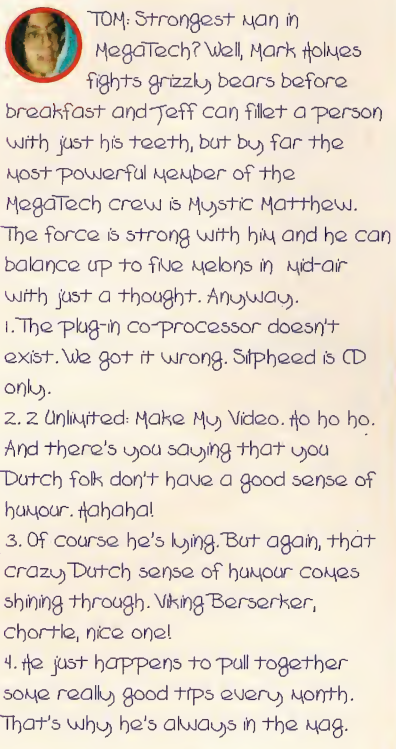 TOM: Strongest man in
MegaTech? Well, Mark Holmes
fights grizzly bears before
breakfast and Jeff can fillet a person
with just his teeth, but by far the
most powerful member of the
MegaTech crew is Mystic Matthew.
The force is strong with him and he can
balance up to five melons in mid-air
with just a thought. Anyway.
1. The plug-in co-processor doesn't
exist. We got it wrong. Silpheed is CD
only.
2. 2 Unlimited: Make My Video. Ho ho ho.
And there's you saying that you
Dutch folk don't have a good sense of
humour. Hahaha!
3. Of course he's lying. But again, that
crazy Dutch sense of humour comes
shining through. Viking Berserker,
chortle, nice one!
4. He just happens to pull together
some really good tips every month.
That's why he's always in the mag.